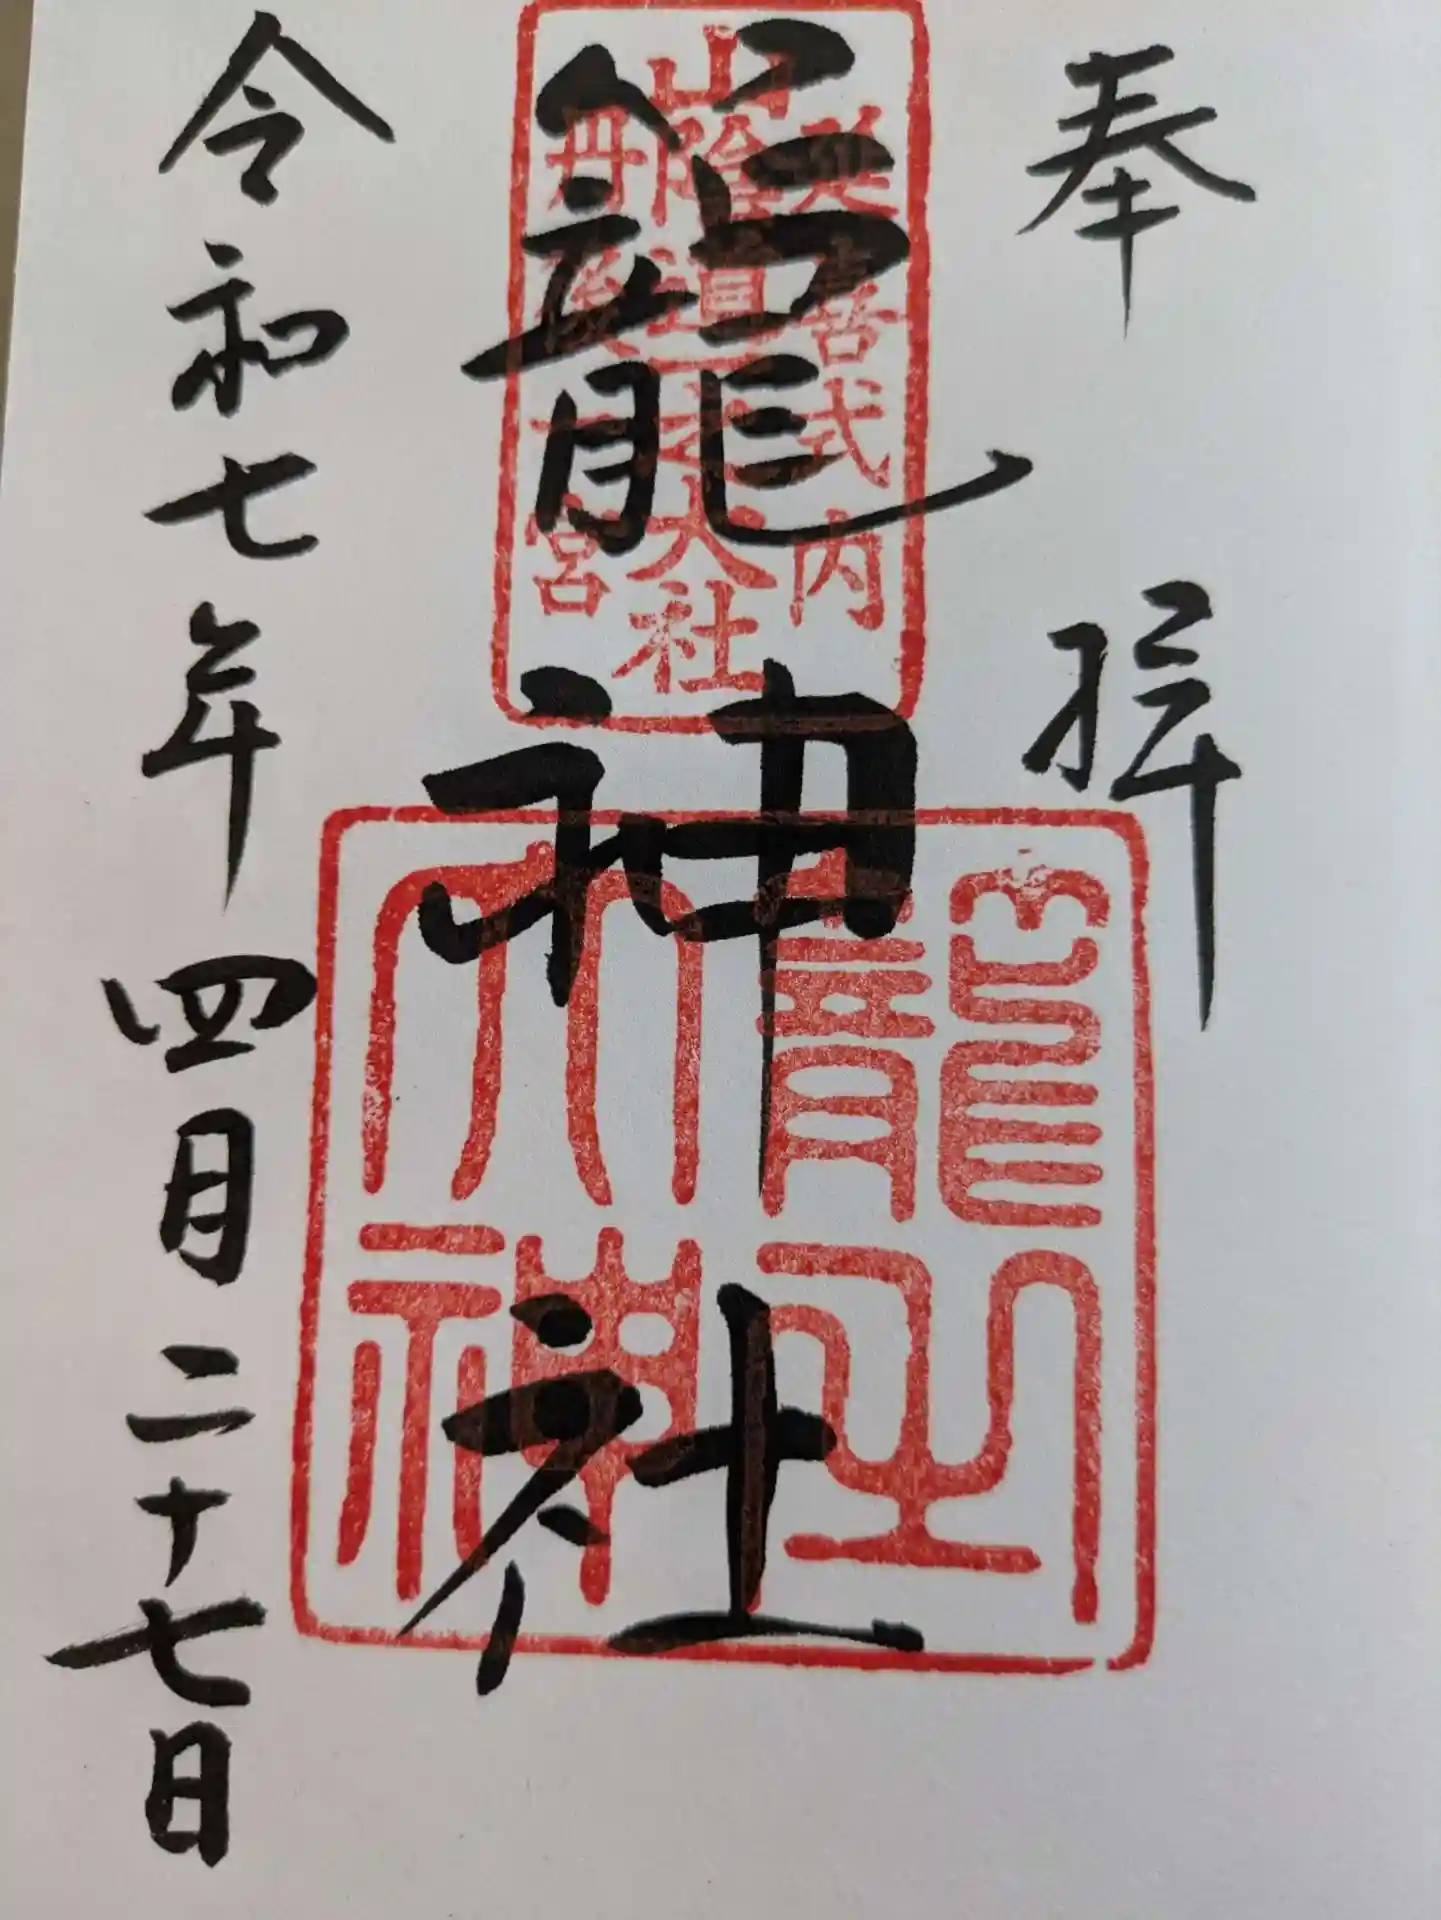 奉拝
延喜式内
山陰道一之大社
丹後一宮
籠神社
令和七年四月二十七日